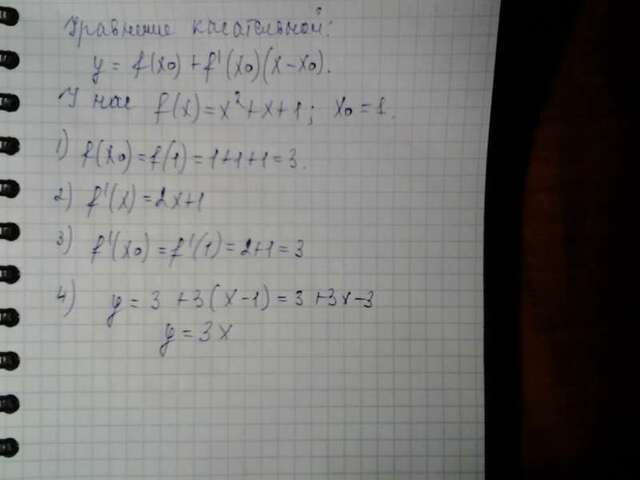 Уравнение касательной:
y = f(x₀) + f'(x₀)(x-x₀).
У нас f(x) = x² + x + 1; x₀ = 1.
1) f(x₀) = f(1) = 1+1+1 = 3.
2) f'(x) = 2x+1
3) f'(x₀) = f'(1) = 2+1 = 3
4) y = 3 + 3(x-1) = 3 + 3x - 3
y = 3x